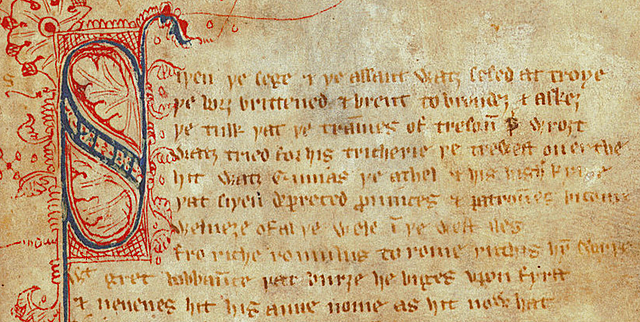 Siþen þe sege & þe assaut watz sesed at troye
þe borȝ brittened & brent to brondeȝ & askez
þe tulk þat þe trãmes of tresoũ þ wroȝt
watz tried for his tricherie þe trewest on erthe
hit watz Ennias þe athel & his highe kynde
þat siþen depreced prouinces & patrounes bicome
welneȝe of al þe wele ĩ þe west iles
fro riche romulus to rome ricchis hỹ swyþe
wt gret bobbaũce þat burȝe he biges vpon fyrst
& neuenes hit his aune nome as hit now hat